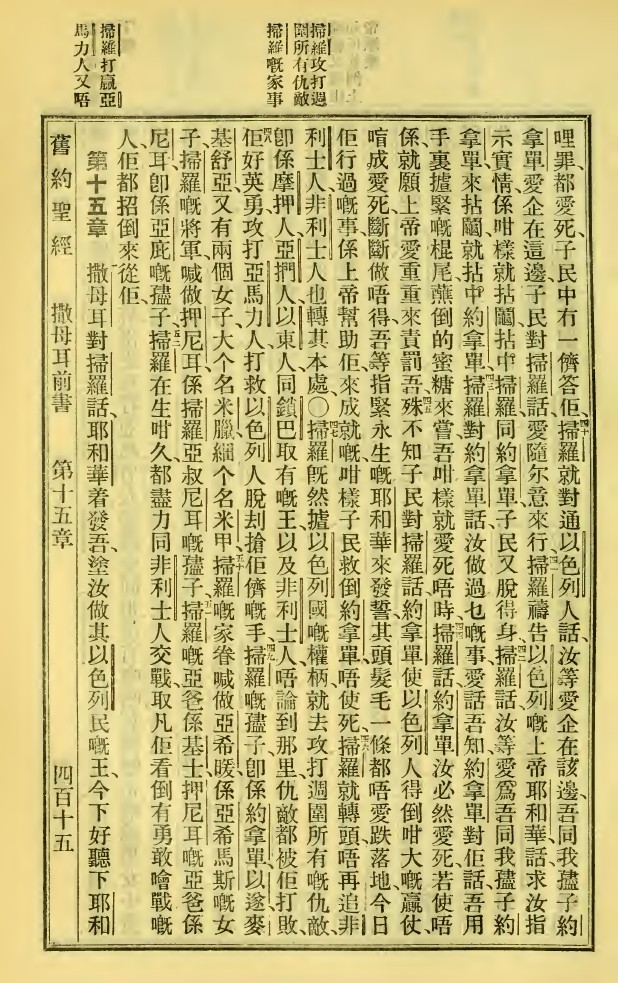 掃羅攻打週
圍所有仇敵
掃羅嘅家事
掃羅打贏亞
馬力人又唔
哩罪、都愛死、子民中有一儕答佢、四十掃羅就對通以色列人話、汝等愛企在該邊、吾同我孻子約
拿單愛企在這邊、子民對掃羅話、愛隨尔意來行、四一掃羅禱告以色列嘅上帝耶和華話、求汝指
示實情係咁樣、就拈鬮拈中掃羅同約拿單、子民又脫得身、四二掃羅話、汝等愛爲吾同我孻子約
拿單來拈鬮、就拈中約拿單、四三掃羅對約拿單話、汝做過乜嘅事、愛話吾知、約拿單對佢話、吾用
手裏攎緊嘅棍尾、蘸倒的蜜糖來嘗、吾咁樣就愛死唔時、四四掃羅話、約拿單、汝必然愛死、若使唔
係、就願上帝愛重重來責罰吾、四五殊不知子民對掃羅話、約拿單使以色列人得倒咁大嘅贏仗、
喑成愛死、斷斷做唔得、吾等指緊永生嘅耶和華來發誓、其頭髮毛一條都唔愛跌落地、今日
佢行過嘅事、係上帝幫助佢來成就嘅、咁樣子民救倒約拿單、唔使死、四六掃羅就轉頭、唔再追非
利士人、非利士人也轉其本處、〇四七掃羅旣然攎以色列國嘅權柄、就去攻打週圍所有嘅仇敵、
卽係摩押人、亞捫人、以東人、同鎖巴取有嘅王、以及非利士人、唔論到那里、仇敵都被佢打敗、
四八佢好英勇、攻打亞馬力人、打救以色列人脫刦搶佢儕嘅手、四九掃羅嘅孻子、卽係約拿單、以遂、麥
基舒亞、又有兩個女子、大个名米臘、細个名米甲、五十掃羅嘅家眷、喊做亞希暖、係亞希馬斯嘅女
子、掃羅嘅將軍、喊做押尼耳、係掃羅亞叔尼耳嘅孻子、五一掃羅嘅亞爸係基士、押尼耳嘅亞爸係
尼耳、卽係亞庇嘅孻子、五二掃羅在生咁久、都盡力同非利士人交戰、取凡佢看倒有勇敢噲戰嘅
人、佢都招倒來從佢、
第十五章 一撒母耳對掃羅話、耶和華着發吾、塗汝做其以色列民嘅王、今下好聽下耶和
舊約聖經 撒母耳前書 第十五章 四百十五